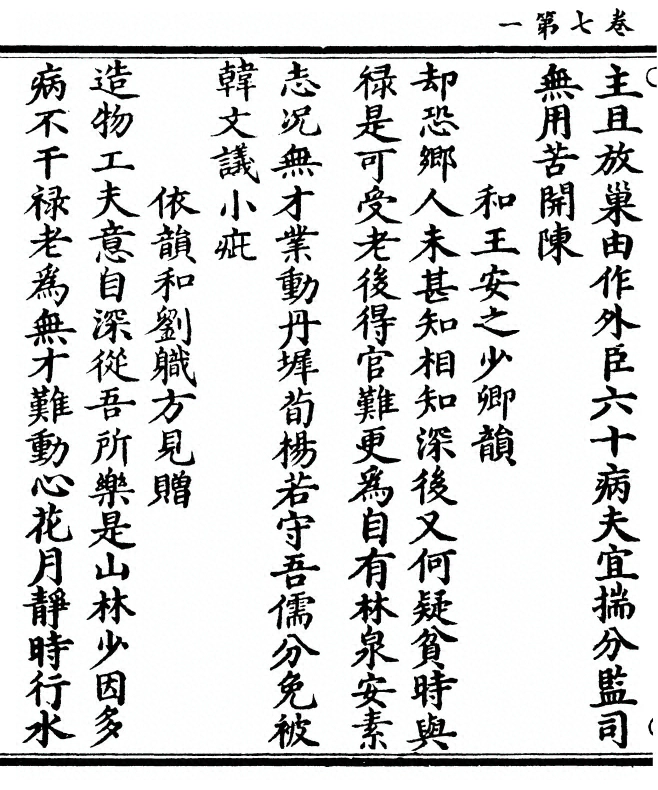 一第七卷
主且放巢由作外臣六十病夫宜揣分監司
無用苦開陳
和王安之少卿韻
却恐鄉人未甚知相知深後又何疑貧時與
祿是可受老後得官難更爲自有林泉安素
志况無才業動丹墀荀楊若守吾儒分免被
韓文議小疵
依韻和劉職方見贈
造物工夫意自深從吾所樂是山林少因多
病不干祿老爲無才難動心花月靜時行水